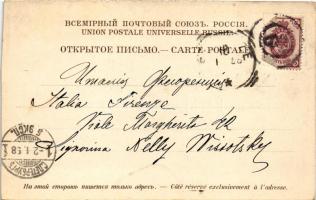 ВСЕМІРНЫЙ ПОЧТОВЫЙ СОЮЗЪ. РОССІЯ.
UNION POSTALE UNIVERSELLE. RUSSIE.
ОТКРЫТОЕ ПИСЬМО.—CARTE POSTALE
Италія Флоренція
Italia Firenze
Viale Margherita 42
Signorina Nelly Wissotsky
На этой сторонѣ пишется только адресъ. — Côté réservé exclusivement à l'adresse.